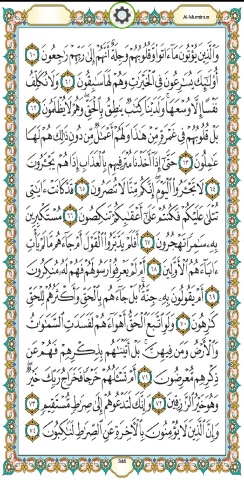 Al-Muminun
وَالَّذِينَ يُؤْتُونَ مَا ءَاتَوا وَّقُلُوبُهُمْ وَجِلَةٌ أَنَّهُمْ إِلَىٰ رَبِّهِمْ رَاجِعُونَ ٦٠
أُولَٰئِكَ يُسَارِعُونَ فِي الْخَيْرَاتِ وَهُمْ لَهَا سَابِقُونَ ٦١ وَلَا نُكَلِّفُ
نَفْسًا إِلَّا وُسْعَهَا وَلَدَيْنَا كِتَابٌ يَنطِقُ بِالْحَقِّ وَهُمْ لَا يُظْلَمُونَ ٦٢
بَلْ قُلُوبُهُمْ فِي غَمْرَةٍ مِّنْ هَٰذَا وَلَهُمْ أَعْمَالٌ مِّن دُونِ ذَٰلِكَ هُمْ لَهَا
عَامِلُونَ ٦٣ حَتَّىٰ إِذَا أَخَذْنَا مُتْرَفِيهِم بِالْعَذَابِ إِذَا هُمْ يَجْأَرُونَ
٦٤ لَا تَجْأَرُوا الْيَوْمَ إِنَّكُم مِّنَّا لَا تُنصَرُونَ ٦٥ قَدْ كَانَتْ ءَايَاتِي
تُتْلَىٰ عَلَيْكُمْ فَكُنتُمْ عَلَىٰ أَعْقَابِكُمْ تَنكِصُونَ ٦٦ مُسْتَكْبِرِينَ
بِهِ سَامِرًا تَهْجُرُونَ ٦٧ أَفَلَمْ يَدَّبَّرُوا الْقَوْلَ أَمْ جَاءَهُم مَّا لَمْ يَأْتِ
ءَابَاءَهُمُ الْأَوَّلِينَ ٦٨ أَمْ لَمْ يَعْرِفُوا رَسُولَهُمْ فَهُمْ لَهُ مُنكِرُونَ
٦٩ أَمْ يَقُولُونَ بِهِ جِنَّةٌ بَلْ جَاءَهُم بِالْحَقِّ وَأَكْثَرُهُمْ لِلْحَقِّ
كَارِهُونَ ٧٠ وَلَوِ اتَّبَعَ الْحَقُّ أَهْوَاءَهُمْ لَفَسَدَتِ السَّمَاوَاتُ
وَالْأَرْضُ وَمَن فِيهِنَّ بَلْ أَتَيْنَاهُم بِذِكْرِهِمْ فَهُمْ عَن
ذِكْرِهِم مُّعْرِضُونَ ٧١ أَمْ تَسْأَلُهُمْ خَرْجًا فَخَرَاجُ رَبِّكَ خَيْرٌ
وَهُوَ خَيْرُ الرَّازِقِينَ ٧٢ وَإِنَّكَ لَتَدْعُوهُمْ إِلَىٰ صِرَاطٍ مُّسْتَقِيمٍ ٧٣
وَإِنَّ الَّذِينَ لَا يُؤْمِنُونَ بِالْآخِرَةِ عَنِ الصِّرَاطِ لَنَاكِبُونَ ٧٤
346